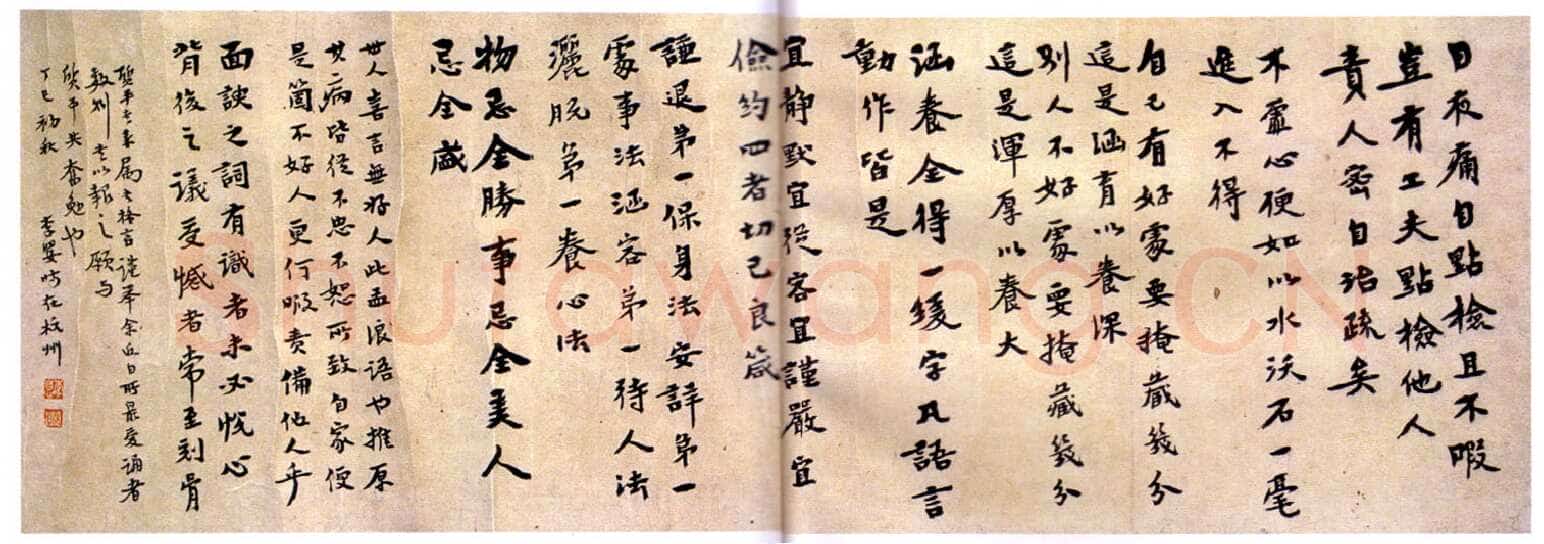 日夜痛自點檢且不暇
豈有工夫點檢他人
責人密自治疏矣
不虛心便如以水沃石一毫
進入不得
自己有好處要掩藏幾分
這是涵育以養深
別人不好處要掩藏幾分
這是渾厚以養大
涵養全得一緩字凡語言
動作皆是
宜靜默宜從容宜謹嚴宜
儉約四者切己良箴
謙退第一保身法安詳第一
處事法涵容第一待人法
灑脫第一養心法
物忌全勝事忌全美人
忌全盛
世人喜言無好人此孟浪語也推原
其病皆從不忠不恕所致自家便
是箇不好人更何暇責備他人乎
面諛之詞有識者未必悅心
背後之議受憾者常至刻骨
属書格言謹舉余近日所最愛誦者
數則書以報之願与
共奮勉也
丁巳初秋 李嬰時在杭州
Soutawang.CN